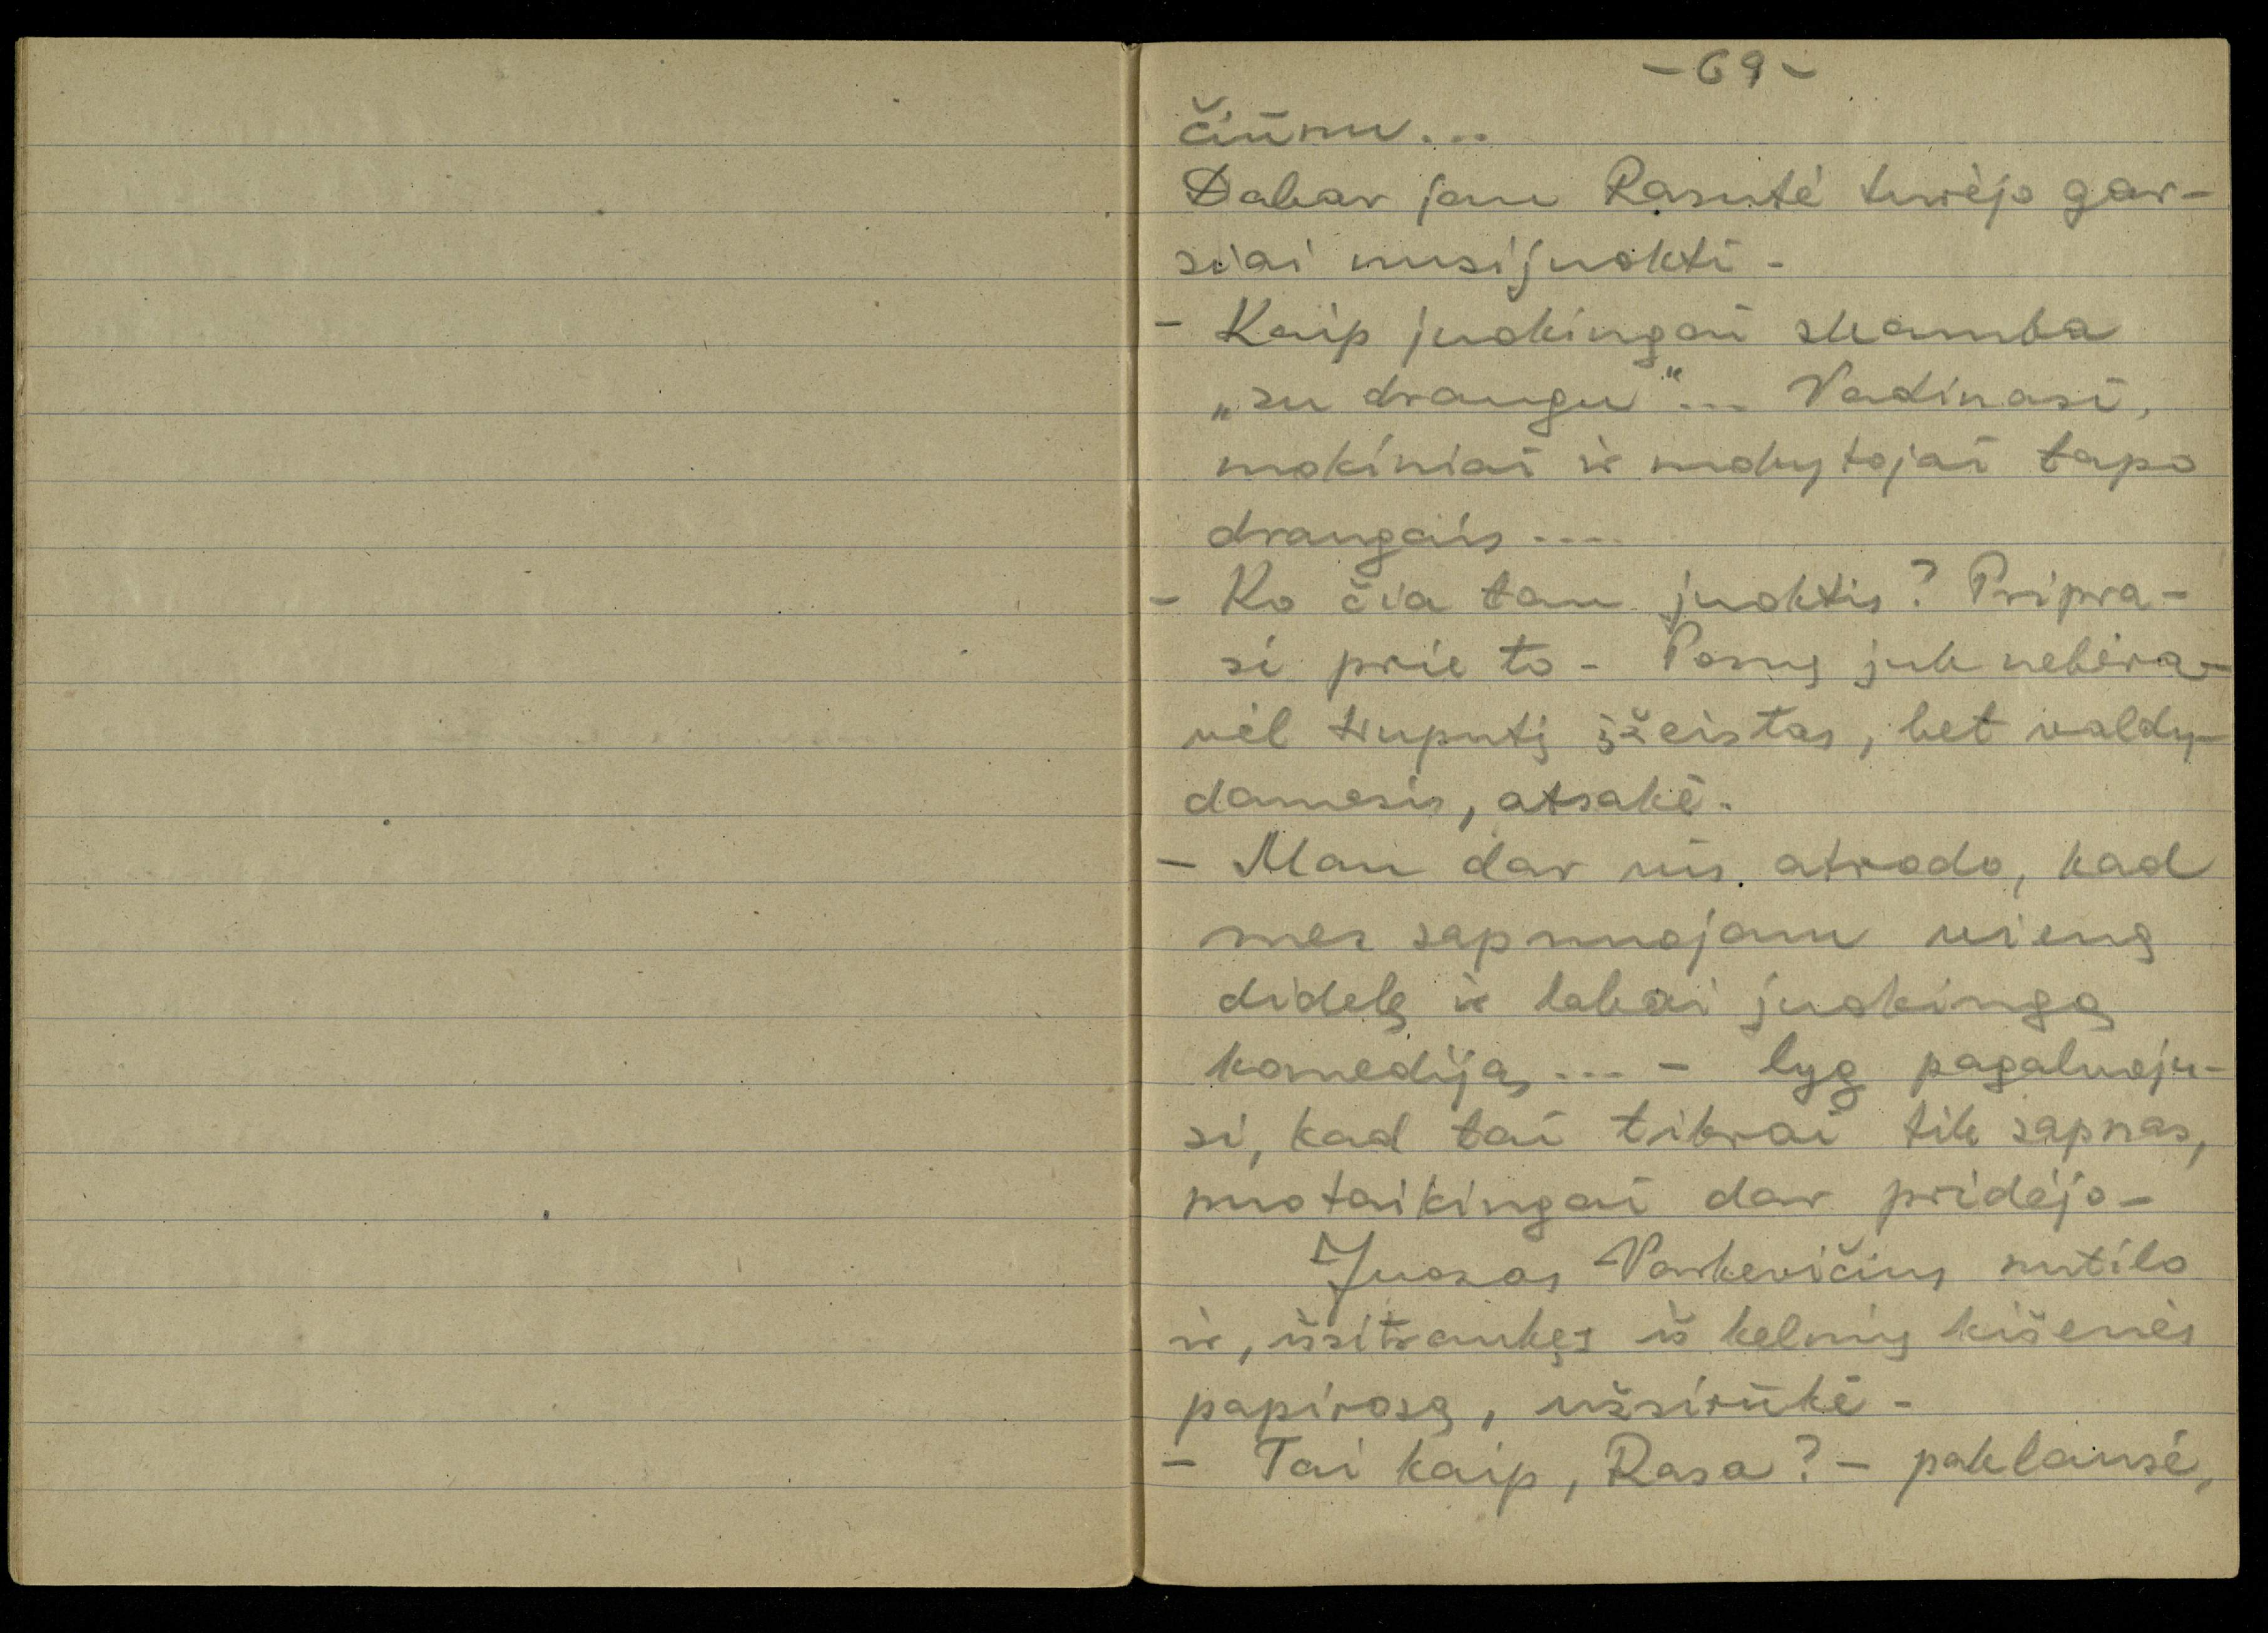 - 69 -
čiūnu...
Dabar jau Rasutė turėjo gar-
siai nusijuokti.
- Kaip juokingai skamba
„su draugu“... Vadinasi,
mokiniai ir mokytojai tapo
draugais....
- Ko čia tau juoktis? Pripra-
si prie to. Ponų juk nebėra -
vėl truputį įžeistas, bet valdy-
damasis, atsakė.
- Man dar vis atrodo, kad
mes sapnuojam vieną
didelę ir labai juokingą
komediją... - lyg pagalvoju-
si, kad tai tikrai tik sapnas,
nuotaikingai dar pridėjo.
Juozas Varkevičius nutilo
ir, išsitraukęs iš kelnių kišenės
papirosą, užsirūkė.
- Tai kaip, Rasa? - paklausė,